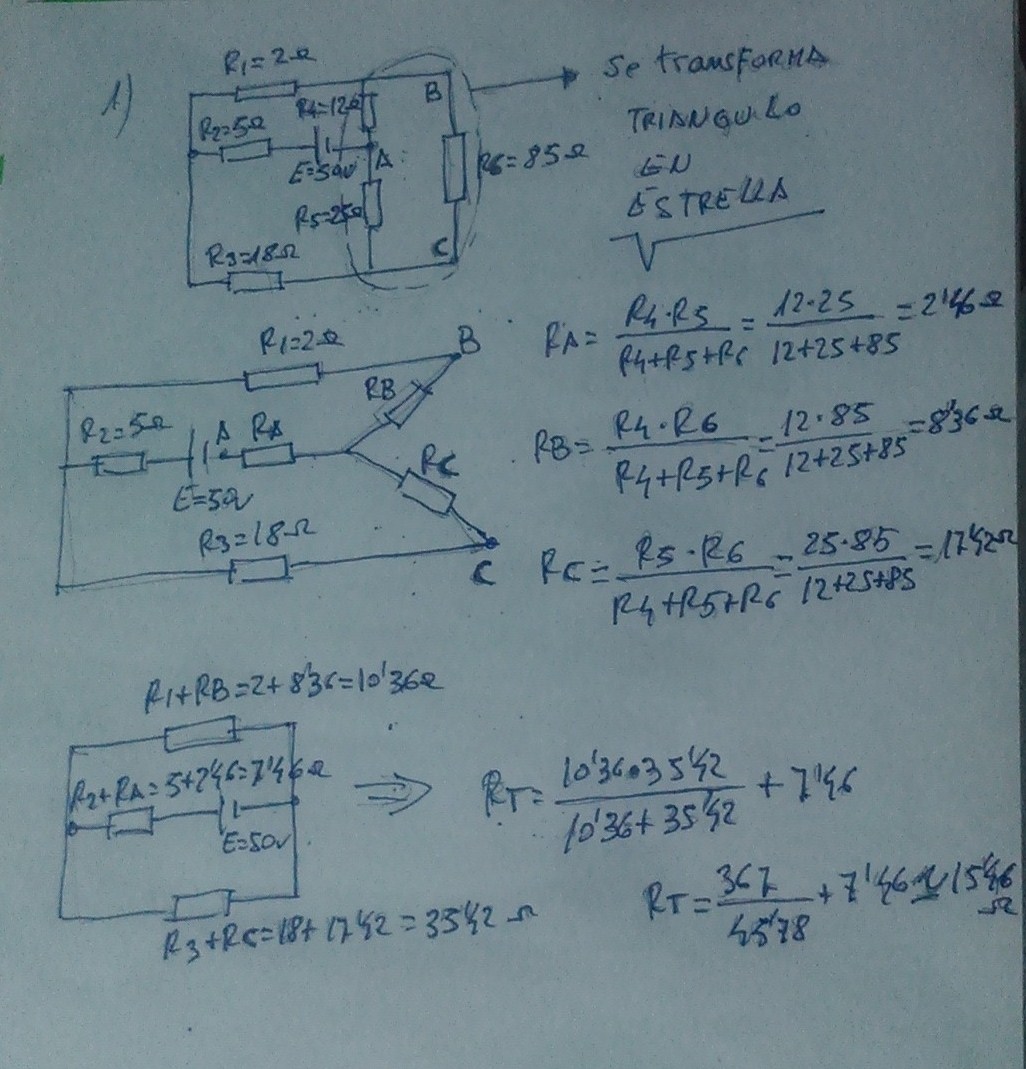 1)
R1=2Ω
R4=12Ω
B
R2=5Ω
E=50V
A
R6=85Ω
R5=25Ω
C
R3=18Ω
Se transFORMA
TRIANGULO
EN
ESTRELLA
RA= R4·R5 / R4+R5+R6 = 12·25 / 12+25+85 = 2'46Ω
R1=2Ω
B
RB
R2=5Ω
A
RA
E=50V
RC
R3=18Ω
C
RB= R4·R6 / R4+R5+R6 = 12·85 / 12+25+85 = 8'36Ω
RC= R5·R6 / R4+R5+R6 = 25·85 / 12+25+85 = 17'42Ω
R1+RB=2+8'36=10'36Ω
R2+RA=5+2'46=7'46Ω
E=50V
R3+RC=18+17'42=35'42Ω
⇒ RT= 10'36·35'42 / 10'36+35'42 + 7'46
RT= 367 / 45'78 + 7'46 ≃ 15'46 Ω